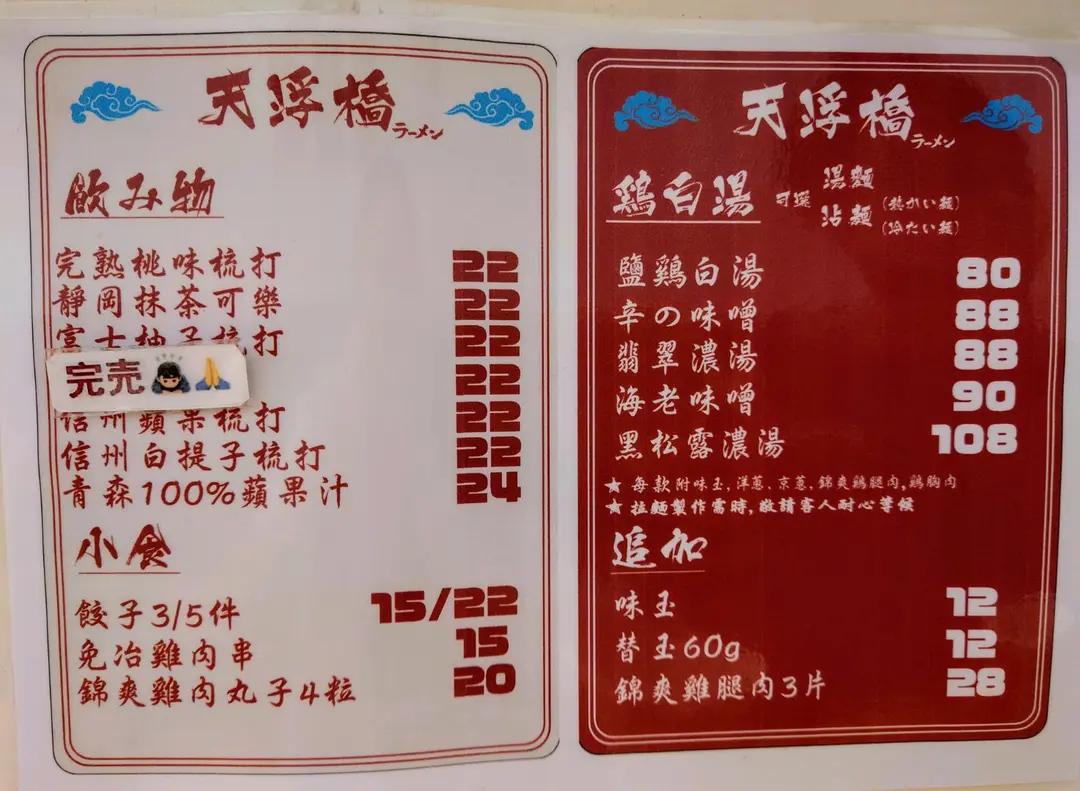 天浮橋
ラーメン
飲み物
完熟桃味梳打 22
靜岡抹茶可樂 22
富士柚子梳打 22
完売 22
信州蘋果梳打 22
信州白提子梳打 22
青森100%蘋果汁 24
小食
餃子3/5件 15/22
免冶雞肉串 15
錦爽雞肉丸子4粒 20
天浮橋
ラーメン
鶏白湯 可選 湯麵
沾麵 (熱かい麺)
(冷たい麺)
鹽鶏白湯 80
辛の味噌 88
翡翠濃湯 88
海老味噌 90
黑松露濃湯 108
★ 每款附味玉, 洋蔥, 京蔥, 錦爽鶏腿肉, 鶏胸肉
★ 拉麵製作需時, 敬請客人耐心等候
追加
味玉 12
替玉60g 12
錦爽雞腿肉3片 28